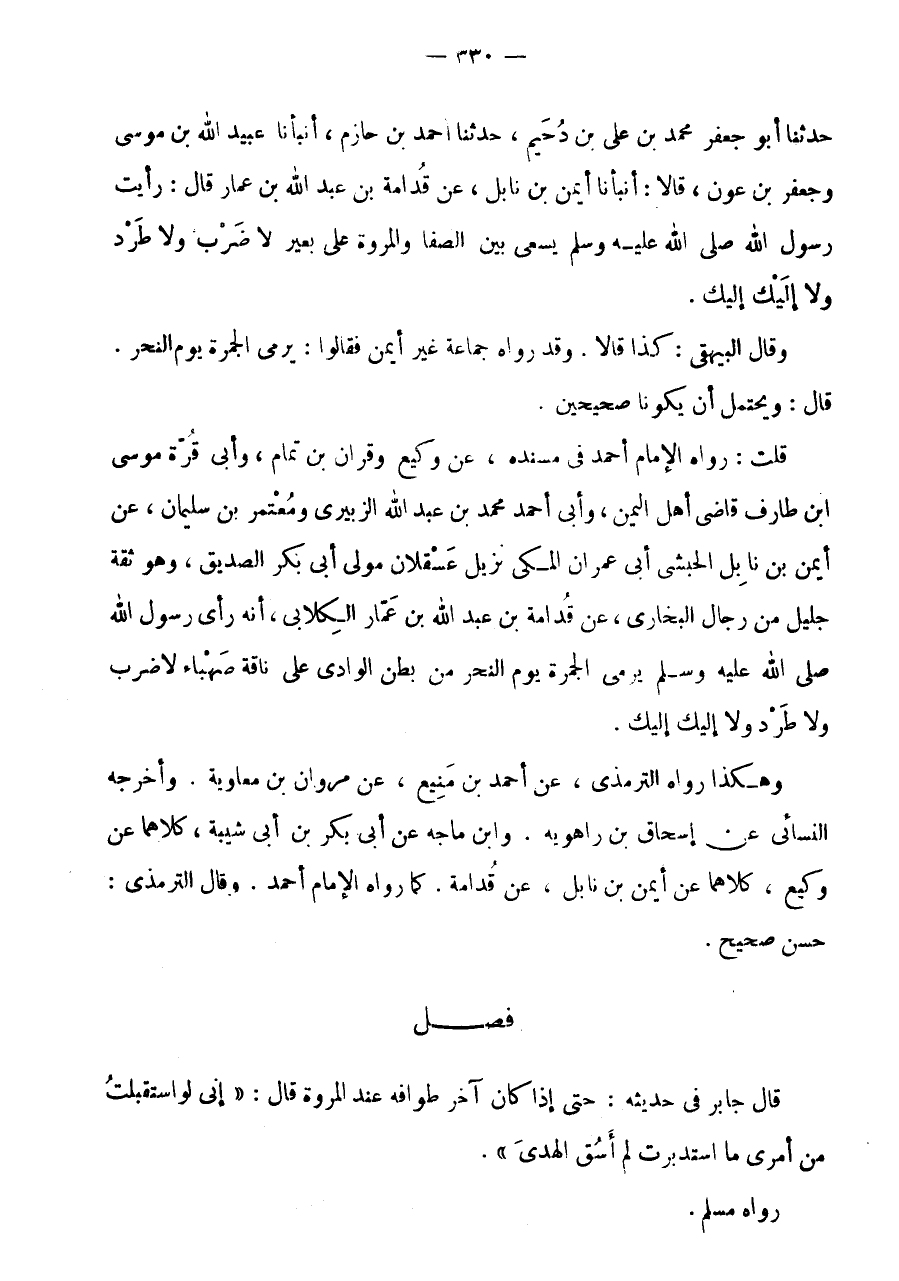 — ٣٣٠ —
حدثنا أبو جعفر محمد بن على بن دُحَيم ، حدثنا أحمد بن حازم ، أنبأنا عبيد الله بن موسى
وجعفر بن عون ، قالا : أنبأنا أيمن بن نابل ، عن قُدامة بن عبد الله بن عمار قال : رأيت
رسول الله صلى الله عليـه وسلم يسعى بين الصفا والمروة على بعير لا ضَرْب ولا طَرْد
ولا إلَيْك إليك .
وقال البيهقى : كذا قالا . وقد رواه جماعة غير أيمن فقالوا : يرمى الجمرة يوم النحر .
قال : ويحتمل أن يكونا صحيحين .
قلت : رواه الإمام أحمد فى مسنده ، عن وكيع وقران بن تمام ، وأبى قُرّة موسى
ابن طارف قاضى أهل اليمن ، وأبى أحمد محمد بن عبد الله الزبيرى ومُعْتمر بن سليمان ، عن
أيمن بن نابِل الحبشى أبى عمران المـكى نزيل عَسْقلان مولى أبى بكر الصديق ، وهو ثقة
جليل من رجال البخارى ، عن قُدامة بن عبد الله بن عَمَّار الـكِلابى ، أنه رأى رسول الله
صلى الله عليه وسـلم يرمى الجمرة يوم النحر من بطن الوادى على ناقة صَهْباء لا ضرب
ولا طَرْد ولا إليك إليك .
وهـكذا رواه الترمذى ، عن أحمد بن مَنِيع ، عن مروان بن معاوية . وأخرجه
النسائى عن إسحاق بن راهويه . وابن ماجه عن أبى بكر بن أبى شيبة ، كلاهما عن
وكيع ، كلاهما عن أيمن بن نابل ، عن قُدامة . كما رواه الإمام أحمد . وقال الترمذى :
حسن صحيح .
فصـــــل
قال جابر فى حديثه : حتى إذا كان آخر طوافه عند المروة قال : « إنى لو استقبلتُ
من أمرى ما استدبرت لم أَسُق الهدىَ » .
رواه مسلم .